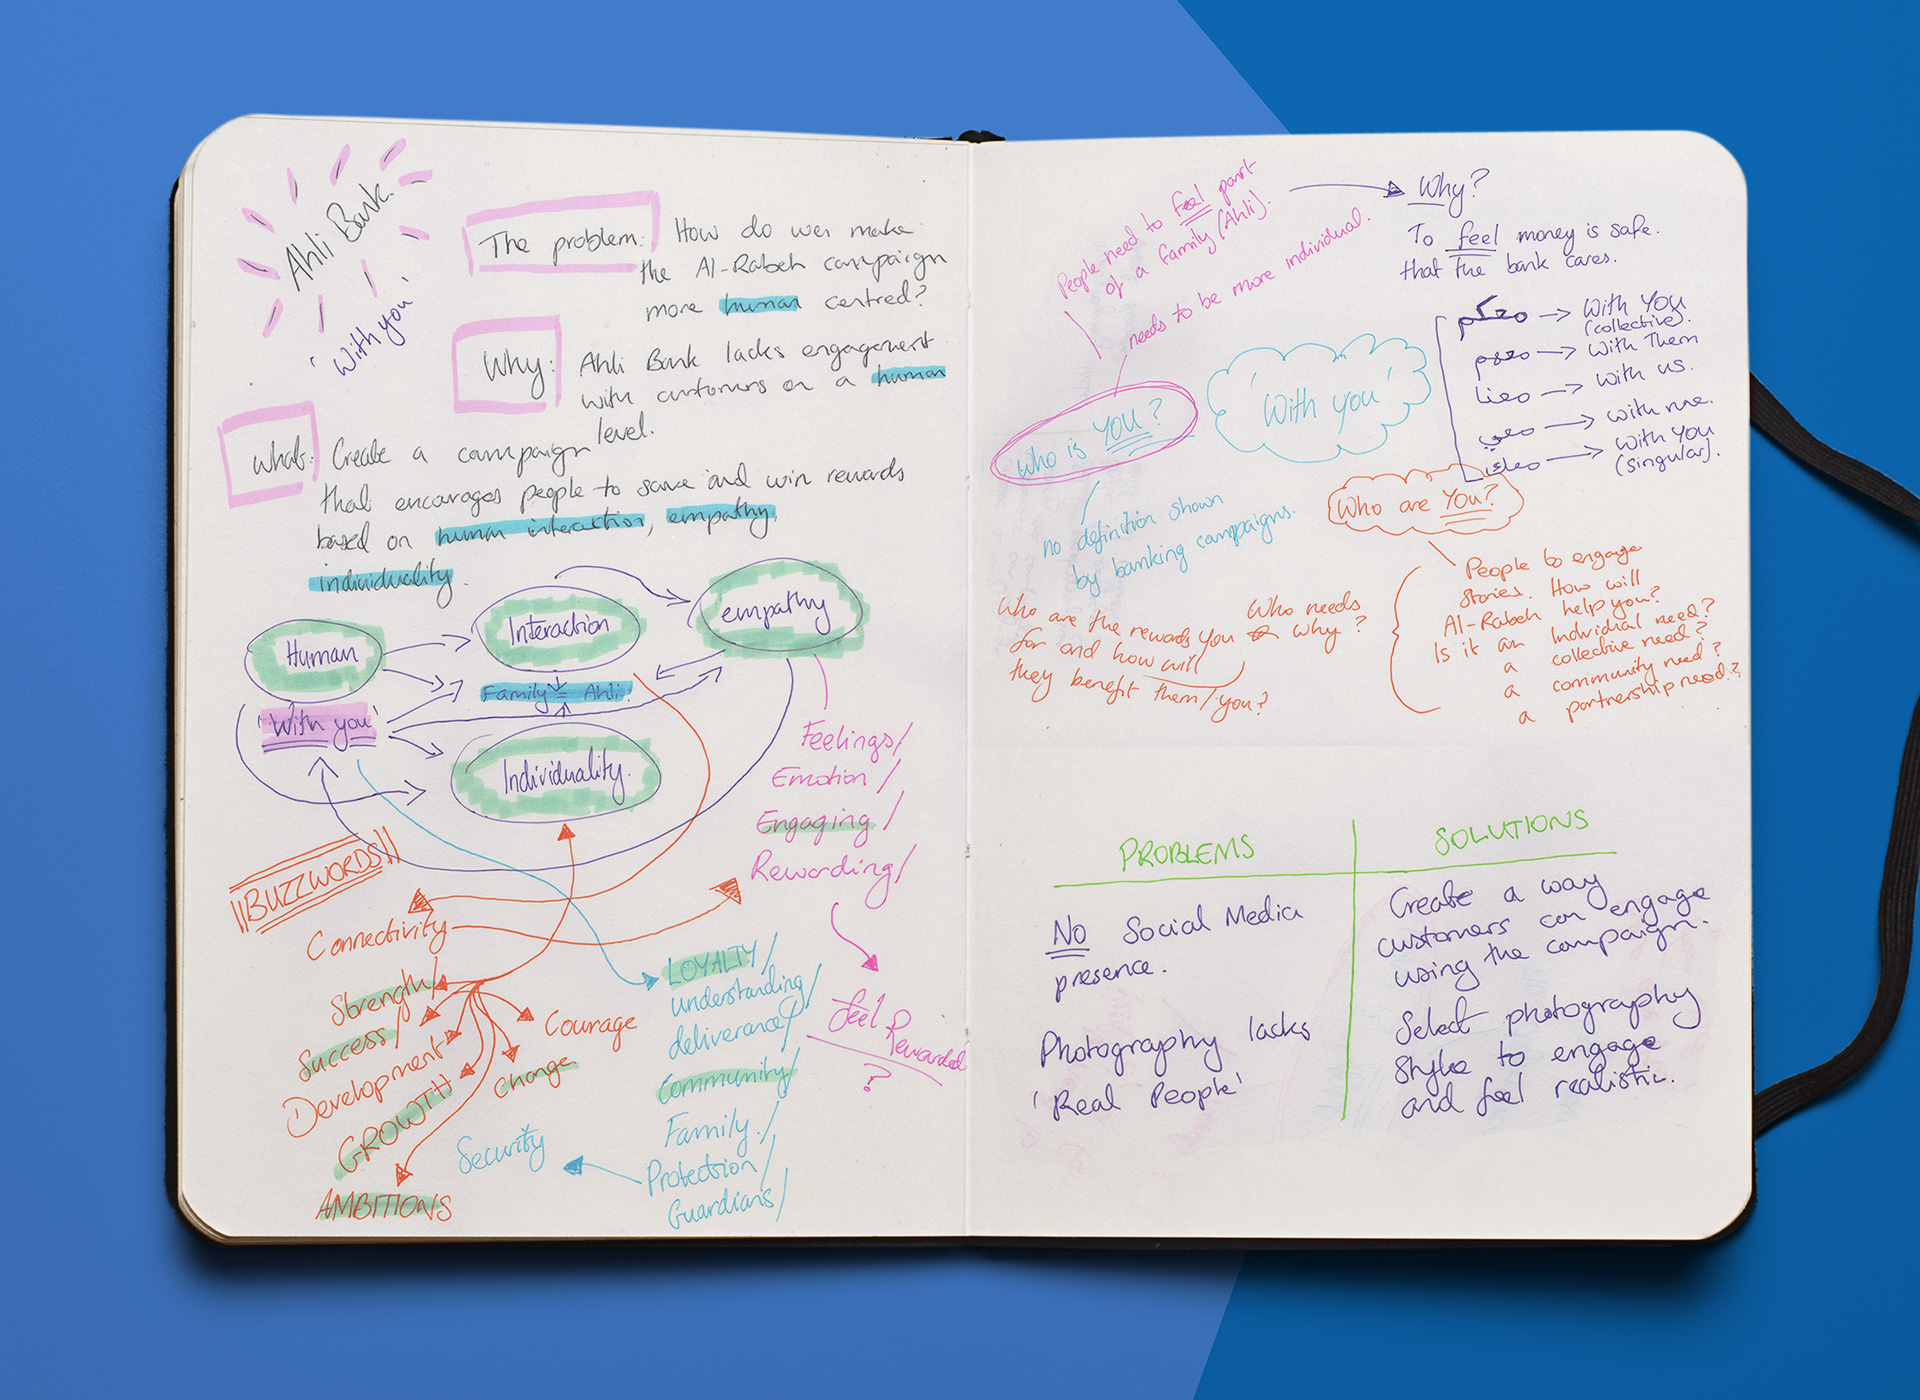 Ahli Bank.
'With you'
The problem: How do we make
the Al-Rabeh campaign
more human centred?
Why: Ahli Bank lacks engagement
with customers on a human
level.
What: Create a campaign
that encourages people to save and win rewards
based on human interaction, empathy,
individuality.
Human
Interaction
empathy
Family = Ahli
'With you'
Individuality.
Feelings/
Emotion/
Engaging/
Rewarding/
feel Rewarded
?
BUZZWORDS
Connectivity
Strength/
Success/
Development
GROWTH
AMBITIONS
Courage
Change
LOYALTY/
understanding/
deliverance/
Community/
Family/
Protection/
Guardians/
Security
People need to feel part
of a family (Ahli).
needs to be more individual.
Why?
To feel money is safe.
that the bank cares.
Who is YOU?
'With you'
معكم → With YOU
(collective).
معهم → With Them
معنا → With us.
معي → with me.
معك → With YOU
(singular).
no definition shown
by banking campaigns.
Who are YOU?
People to engage
stories. How will
Al-Rabeh help you?
Is it an Individual need?
a collective need?
a community need?
a partnership need?
Who are the rewards you
for and how will
they benefit them/you?
Who needs
why?
PROBLEMS
SOLUTIONS
No Social Media
presence.
Create a way
customers can engage
using the campaign.
Photography lacks
'Real People'
Select photography
style to engage
and feel realistic.